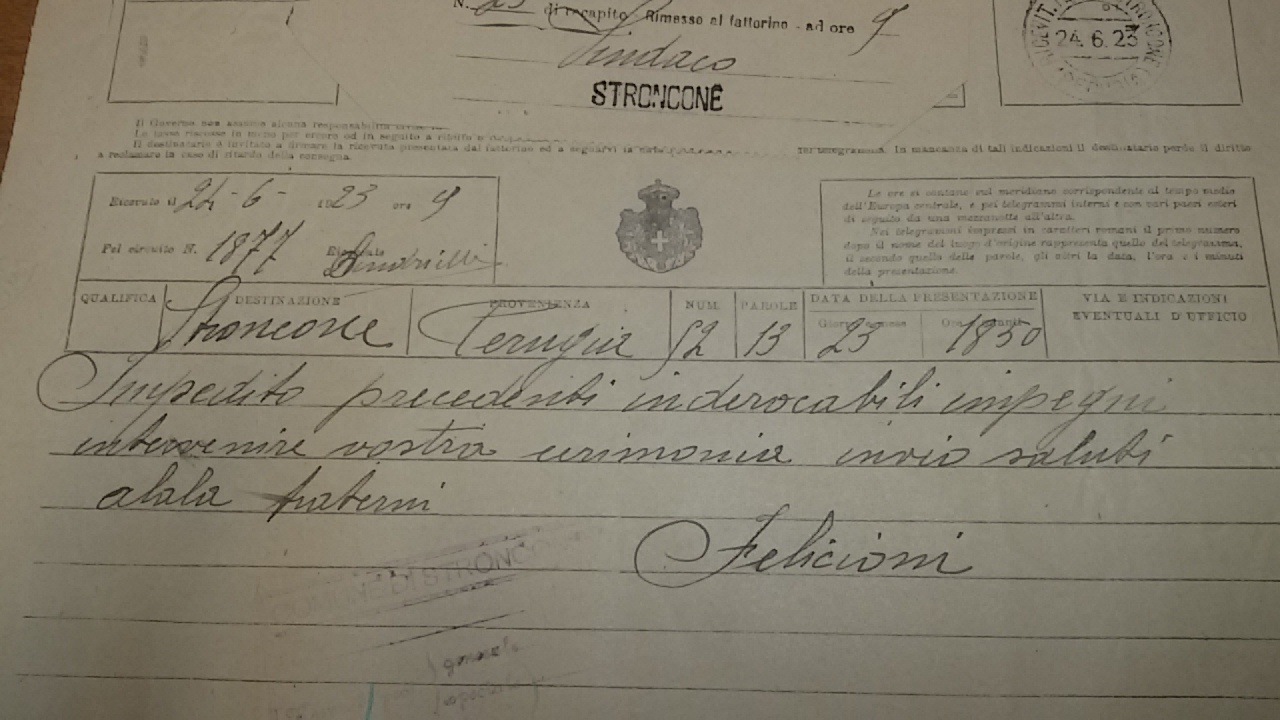 N. 25 di recapito Rimesso al fattorino - ad ore 9
Sindaco
STRONCONE
24.6.23
Il Governo non assume alcuna responsabilità
Le tasse riscosse in meno per errore od in seguito a rifiuto
Il destinatario è invitato a firmare la ricevuta presentata dal fattorino ed a segnarvi la telegramma. In mancanza di tali indicazioni il destinatario perde il diritto
a reclamare in caso di ritardo della consegna.
Ricevuto il 24-6- 1923 ore 9
Pel circuito N. 1877
Le ore si contano sul meridiano corrispondente al tempo medio
dell'Europa centrale, e pei telegrammi interni e con vari paesi esteri
di seguito da una mezzanotte all'altra.
Nei telegrammi impressi in caratteri romani il primo numero
dopo il nome del luogo d'origine rappresenta quello del telegramma,
il secondo quello delle parole, gli altri la data, l'ora e i minuti
della presentazione.
QUALIFICA DESTINAZIONE PROVENIENZA NUM. PAROLE DATA DELLA PRESENTAZIONE VIA E INDICAZIONI
EVENTUALI D'UFFICIO
Stroncone Perugia 52 13 23 1850
Impedito precedenti inderocabili impegni
intervenire vostra cerimonia invio saluti
alala fraterni
Felicioni
DI STRONC